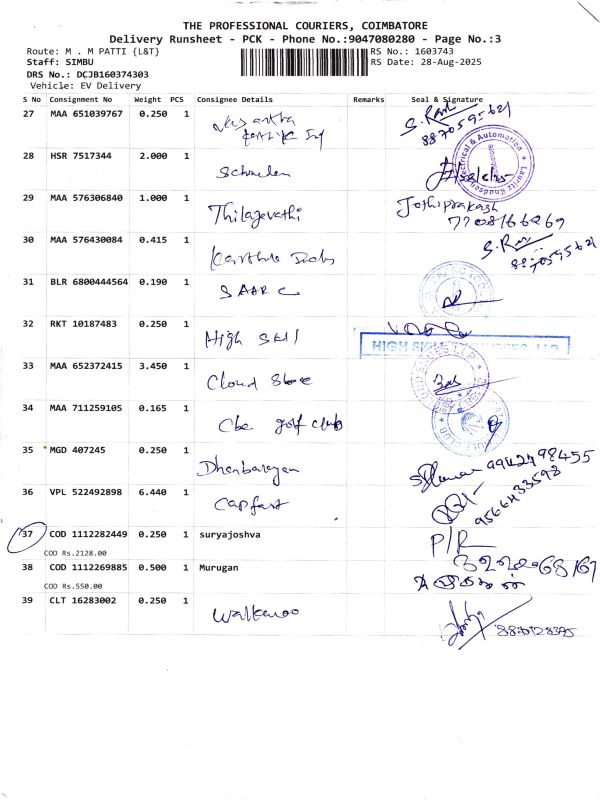 THE PROFESSIONAL COURIERS, COIMBATORE
Delivery Runsheet - PCK - Phone No.:9047080280 - Page No.:3
Route: M . M PATTI {L&T}
RS No.: 1603743
Staff: SIMBU
RS Date: 28-Aug-2025
DRS No.: DCJB160374303
Vehicle: EV Delivery
S No Consignment No Weight PCS Consignee Details Remarks Seal & Signature
27 MAA 651039767 0.250 1 S. Ram
8870595621
28 HSR 7517344 2.000 1
Electrical & Automation
29 MAA 576306840 1.000 1 Thilagavathi Jothiprakash
7708166269
30 MAA 576430084 0.415 1 S. Ram
8870595621
31 BLR 6800444564 0.190 1 SAAR C
32 RKT 10187483 0.250 1 High Skill
HIGH
33 MAA 652372415 3.450 1 Cloud Store
34 MAA 711259105 0.165 1 Cbe golf club
35 MGD 407245 0.250 1 9942498455
36 VPL 522492898 6.440 1 Capfast 9566433598
37 COD 1112282449 0.250 1 suryajoshva P/R
COD Rs.2128.00
38 COD 1112269885 0.500 1 Murugan
COD Rs.550.00
39 CLT 16283002 0.250 1 Walkaroo